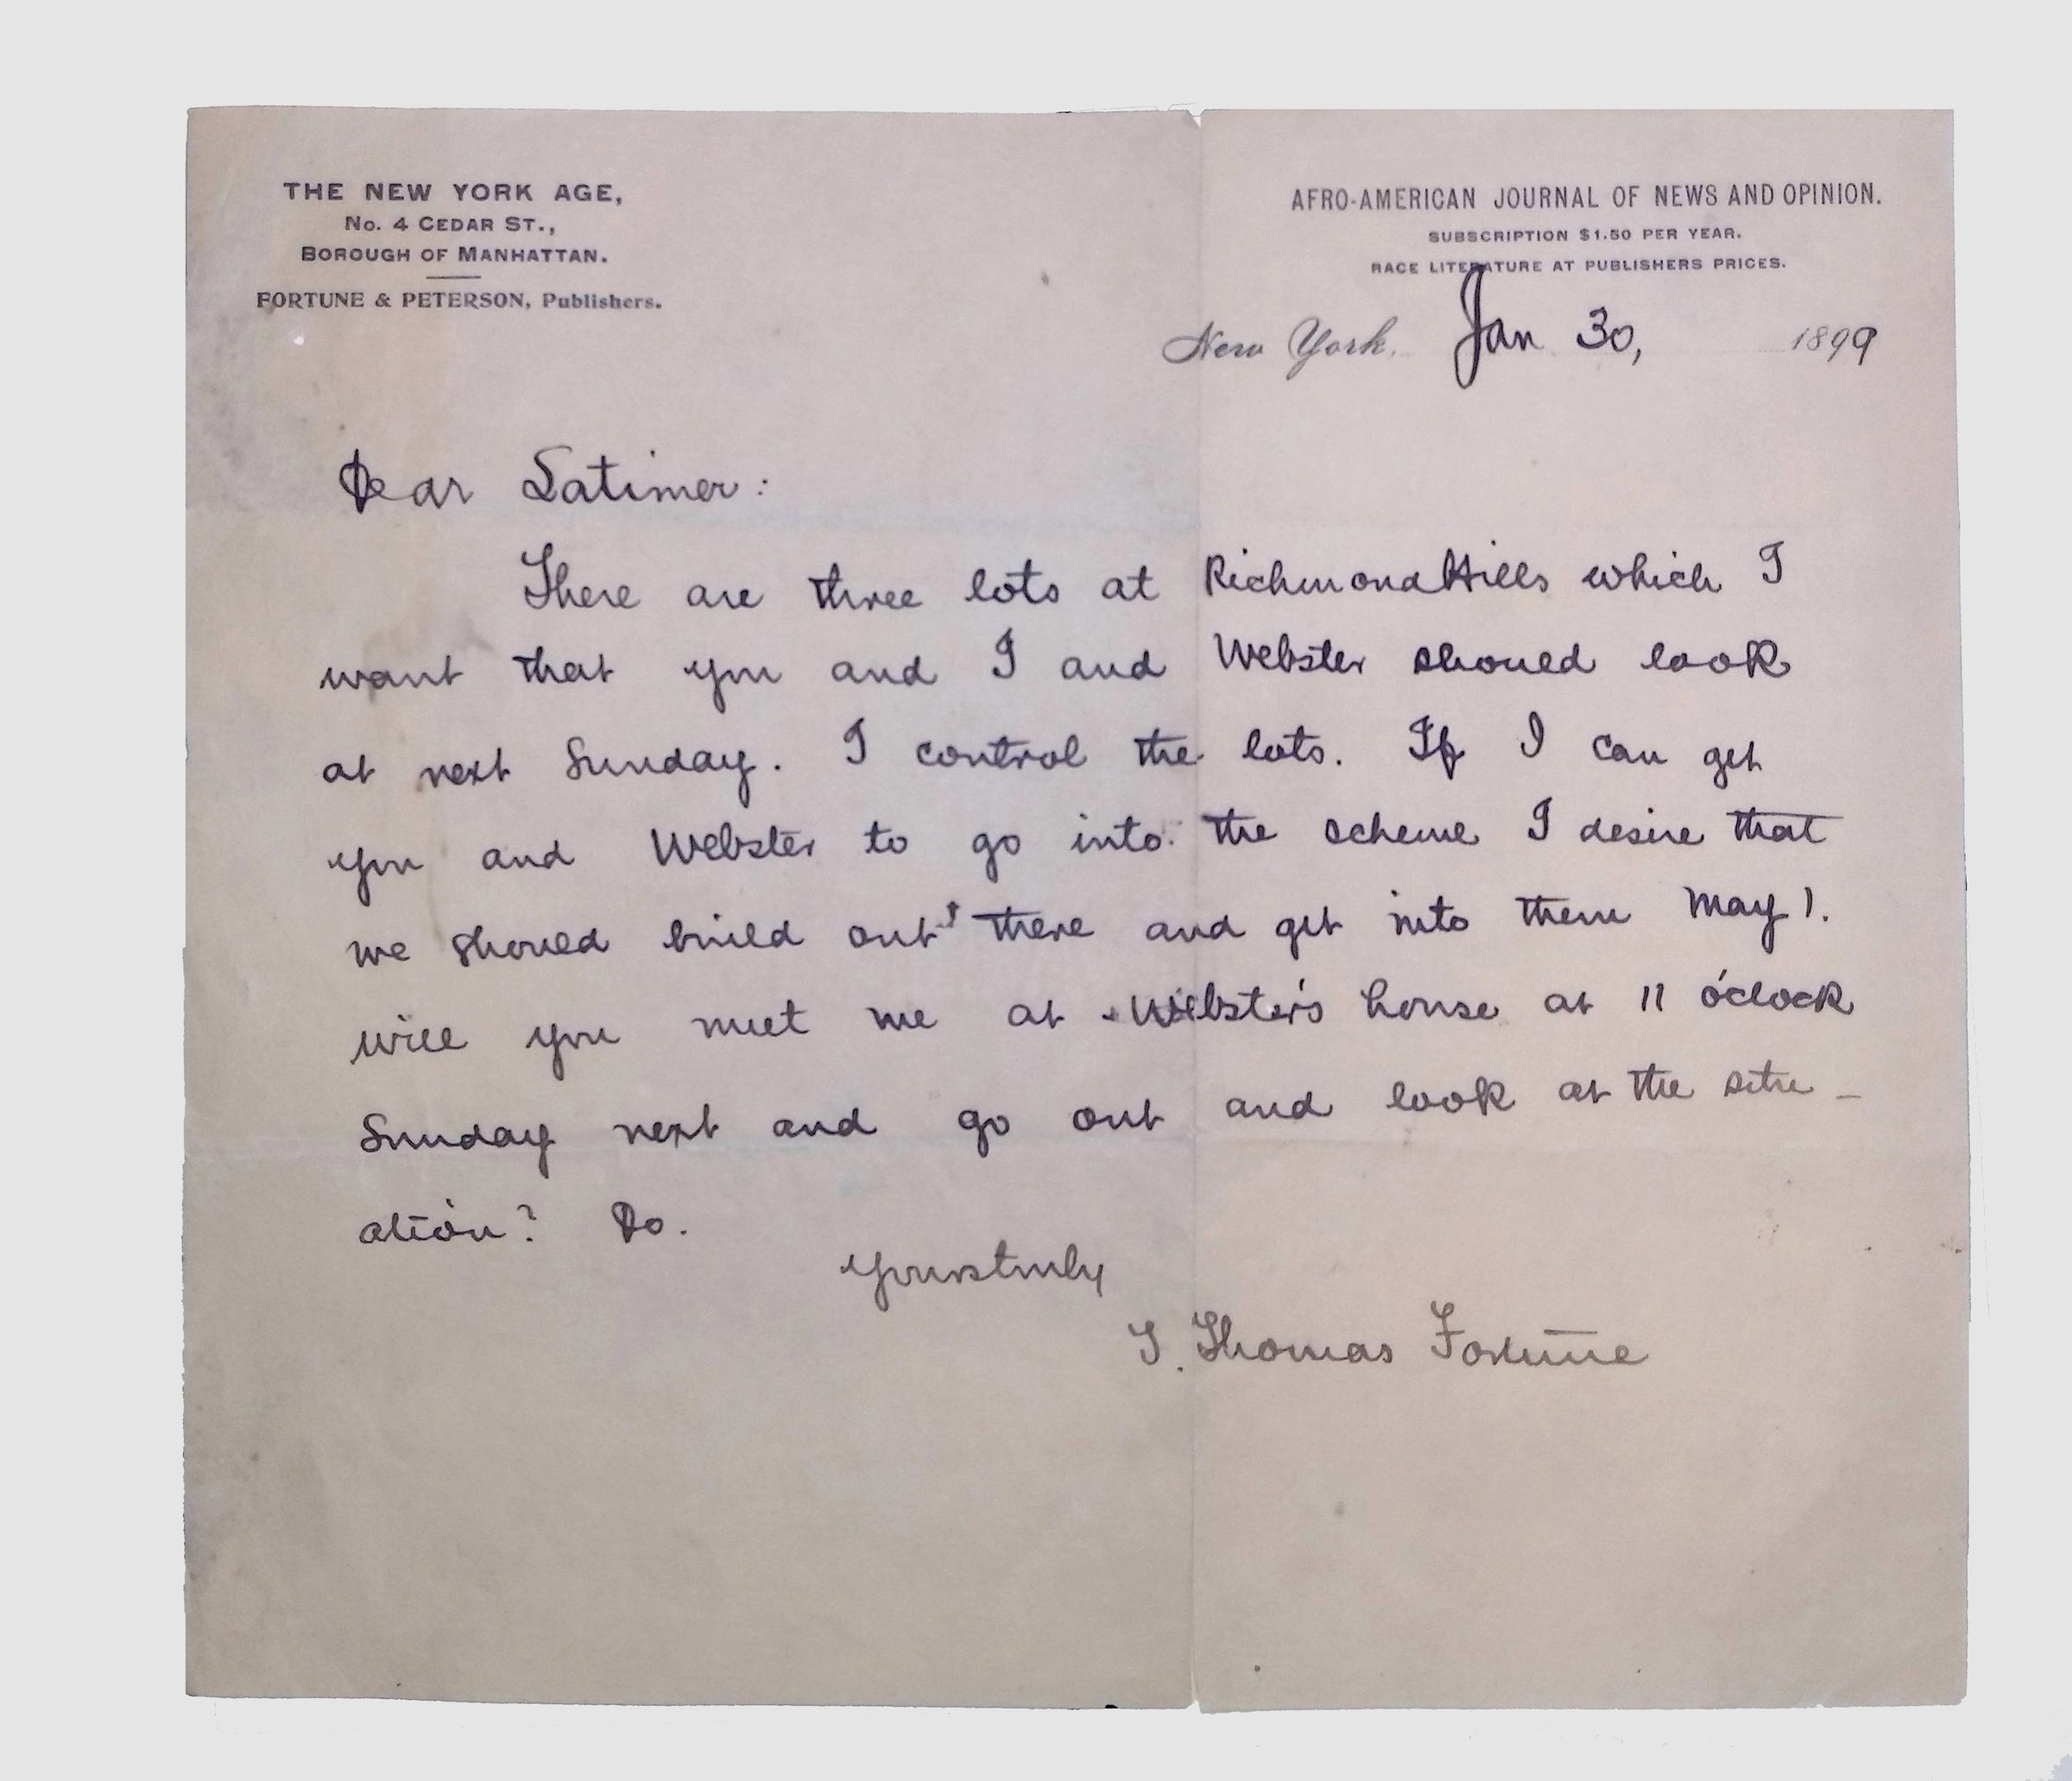 THE NEW YORK AGE,
No. 4 CEDAR ST.,
BOROUGH OF MANHATTAN.
FORTUNE & PETERSON, Publishers.
AFRO-AMERICAN JOURNAL OF NEWS AND OPINION.
SUBSCRIPTION $1.50 PER YEAR.
RACE LITERATURE AT PUBLISHERS PRICES.
New York, Jan 30, 1899
Dear Latimer:
There are three lots at Richmond Hills which I
want that you and I and Webster should look
at next Sunday. I control the lots. If I can get
you and Webster to go into the scheme I desire that
we should build out there and get into them May 1.
Will you meet me at Webster's house at 11 o'clock
Sunday next and go out and look at the situ-
ation? Do.
Yours truly
T. Thomas Fortune